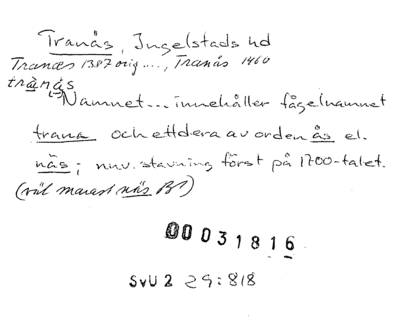 Tranås, Ingelstads hd
Tranæs 1387 orig ...., Tranås 1460
trànás
Namnet... innehåller fågelnamnet
trana och ettdera av orden ås el.
näs; nuv. stavning först på 1700-talet.
(väl marast näs BJ)
00031816
SvU 2 29:818